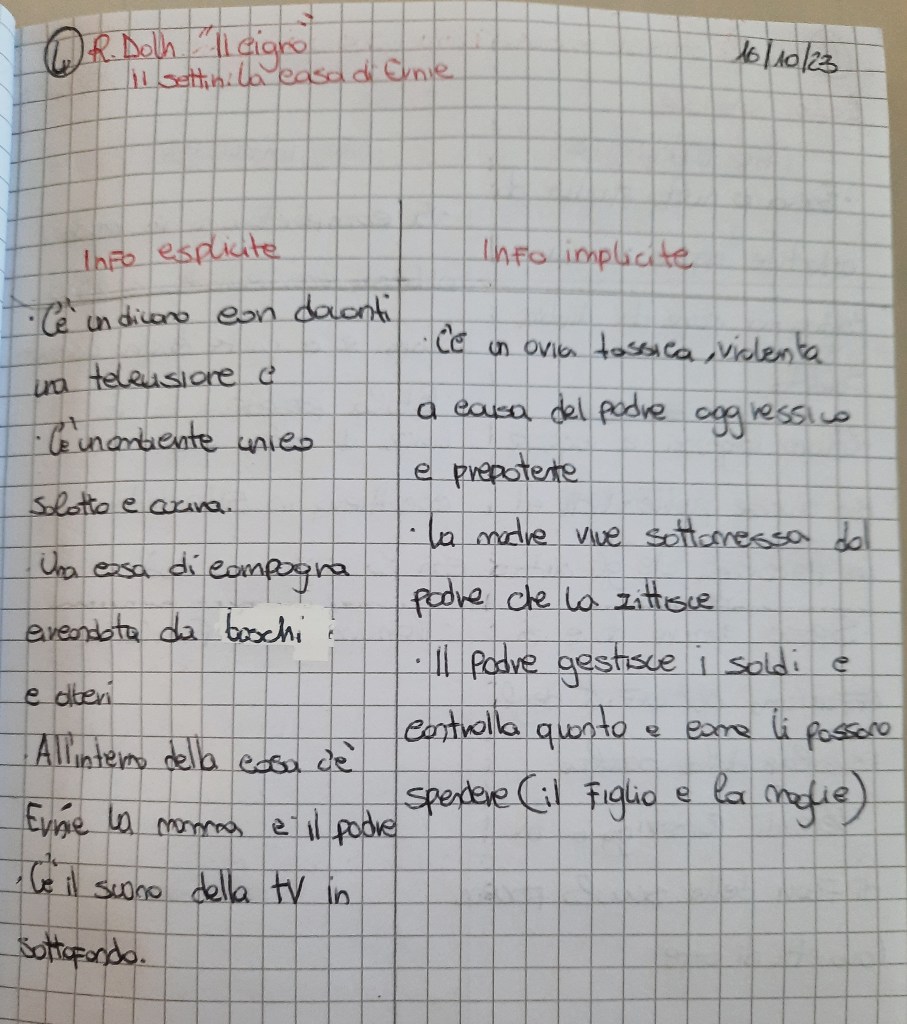 4 R. Dolh "Il cigno" 16/10/23
Il settin: la casa di Ernie
Info esplicite
C'è un divano con davanti
una televisione e
· C'è un ambiente unico
salotto e cucina.
Una casa di campagna
circondata da boschi
e alberi
· All'interno della casa c'è
Ernie la mamma e il padre
· C'è il suono della tv in
sottofondo.
Info implicite
· C'è un aria tossica, violenta
a causa del padre aggressivo
e prepotente
· La madre vive sottomessa dal
padre che la zittisce
· Il padre gestisce i soldi e
controlla quanto e come li possono
spendere (il figlio e la moglie)